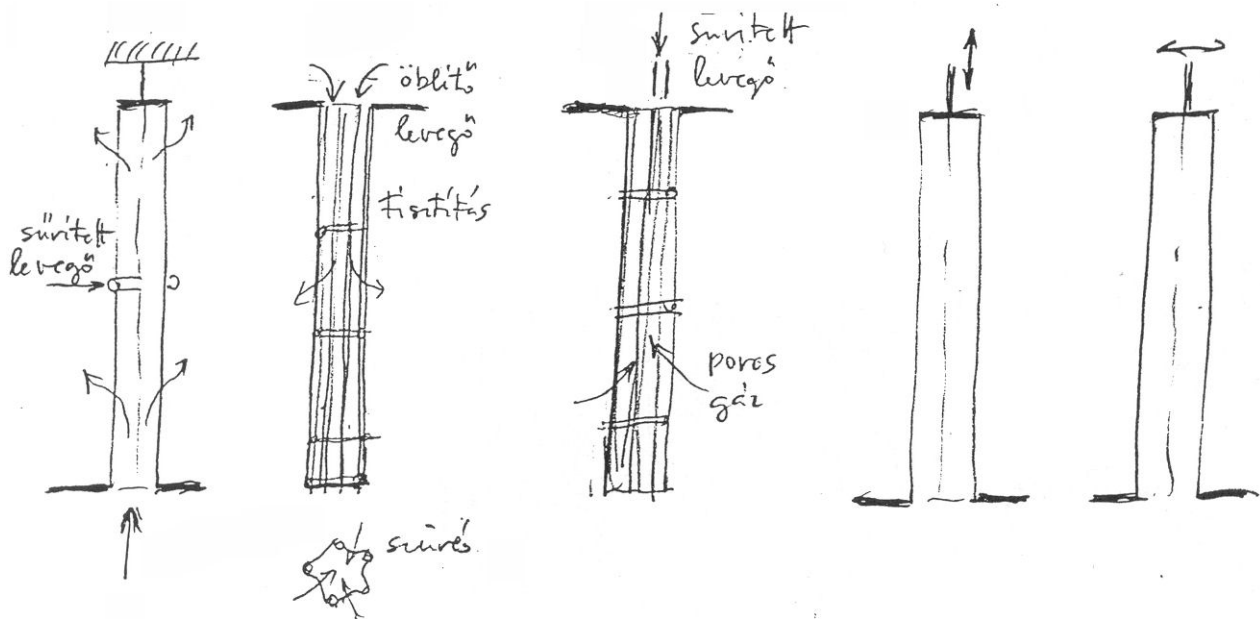 sűrített
levegő
öblítő
levegő
tisztítás
szűrés
sűrített
levegő
poros
gáz